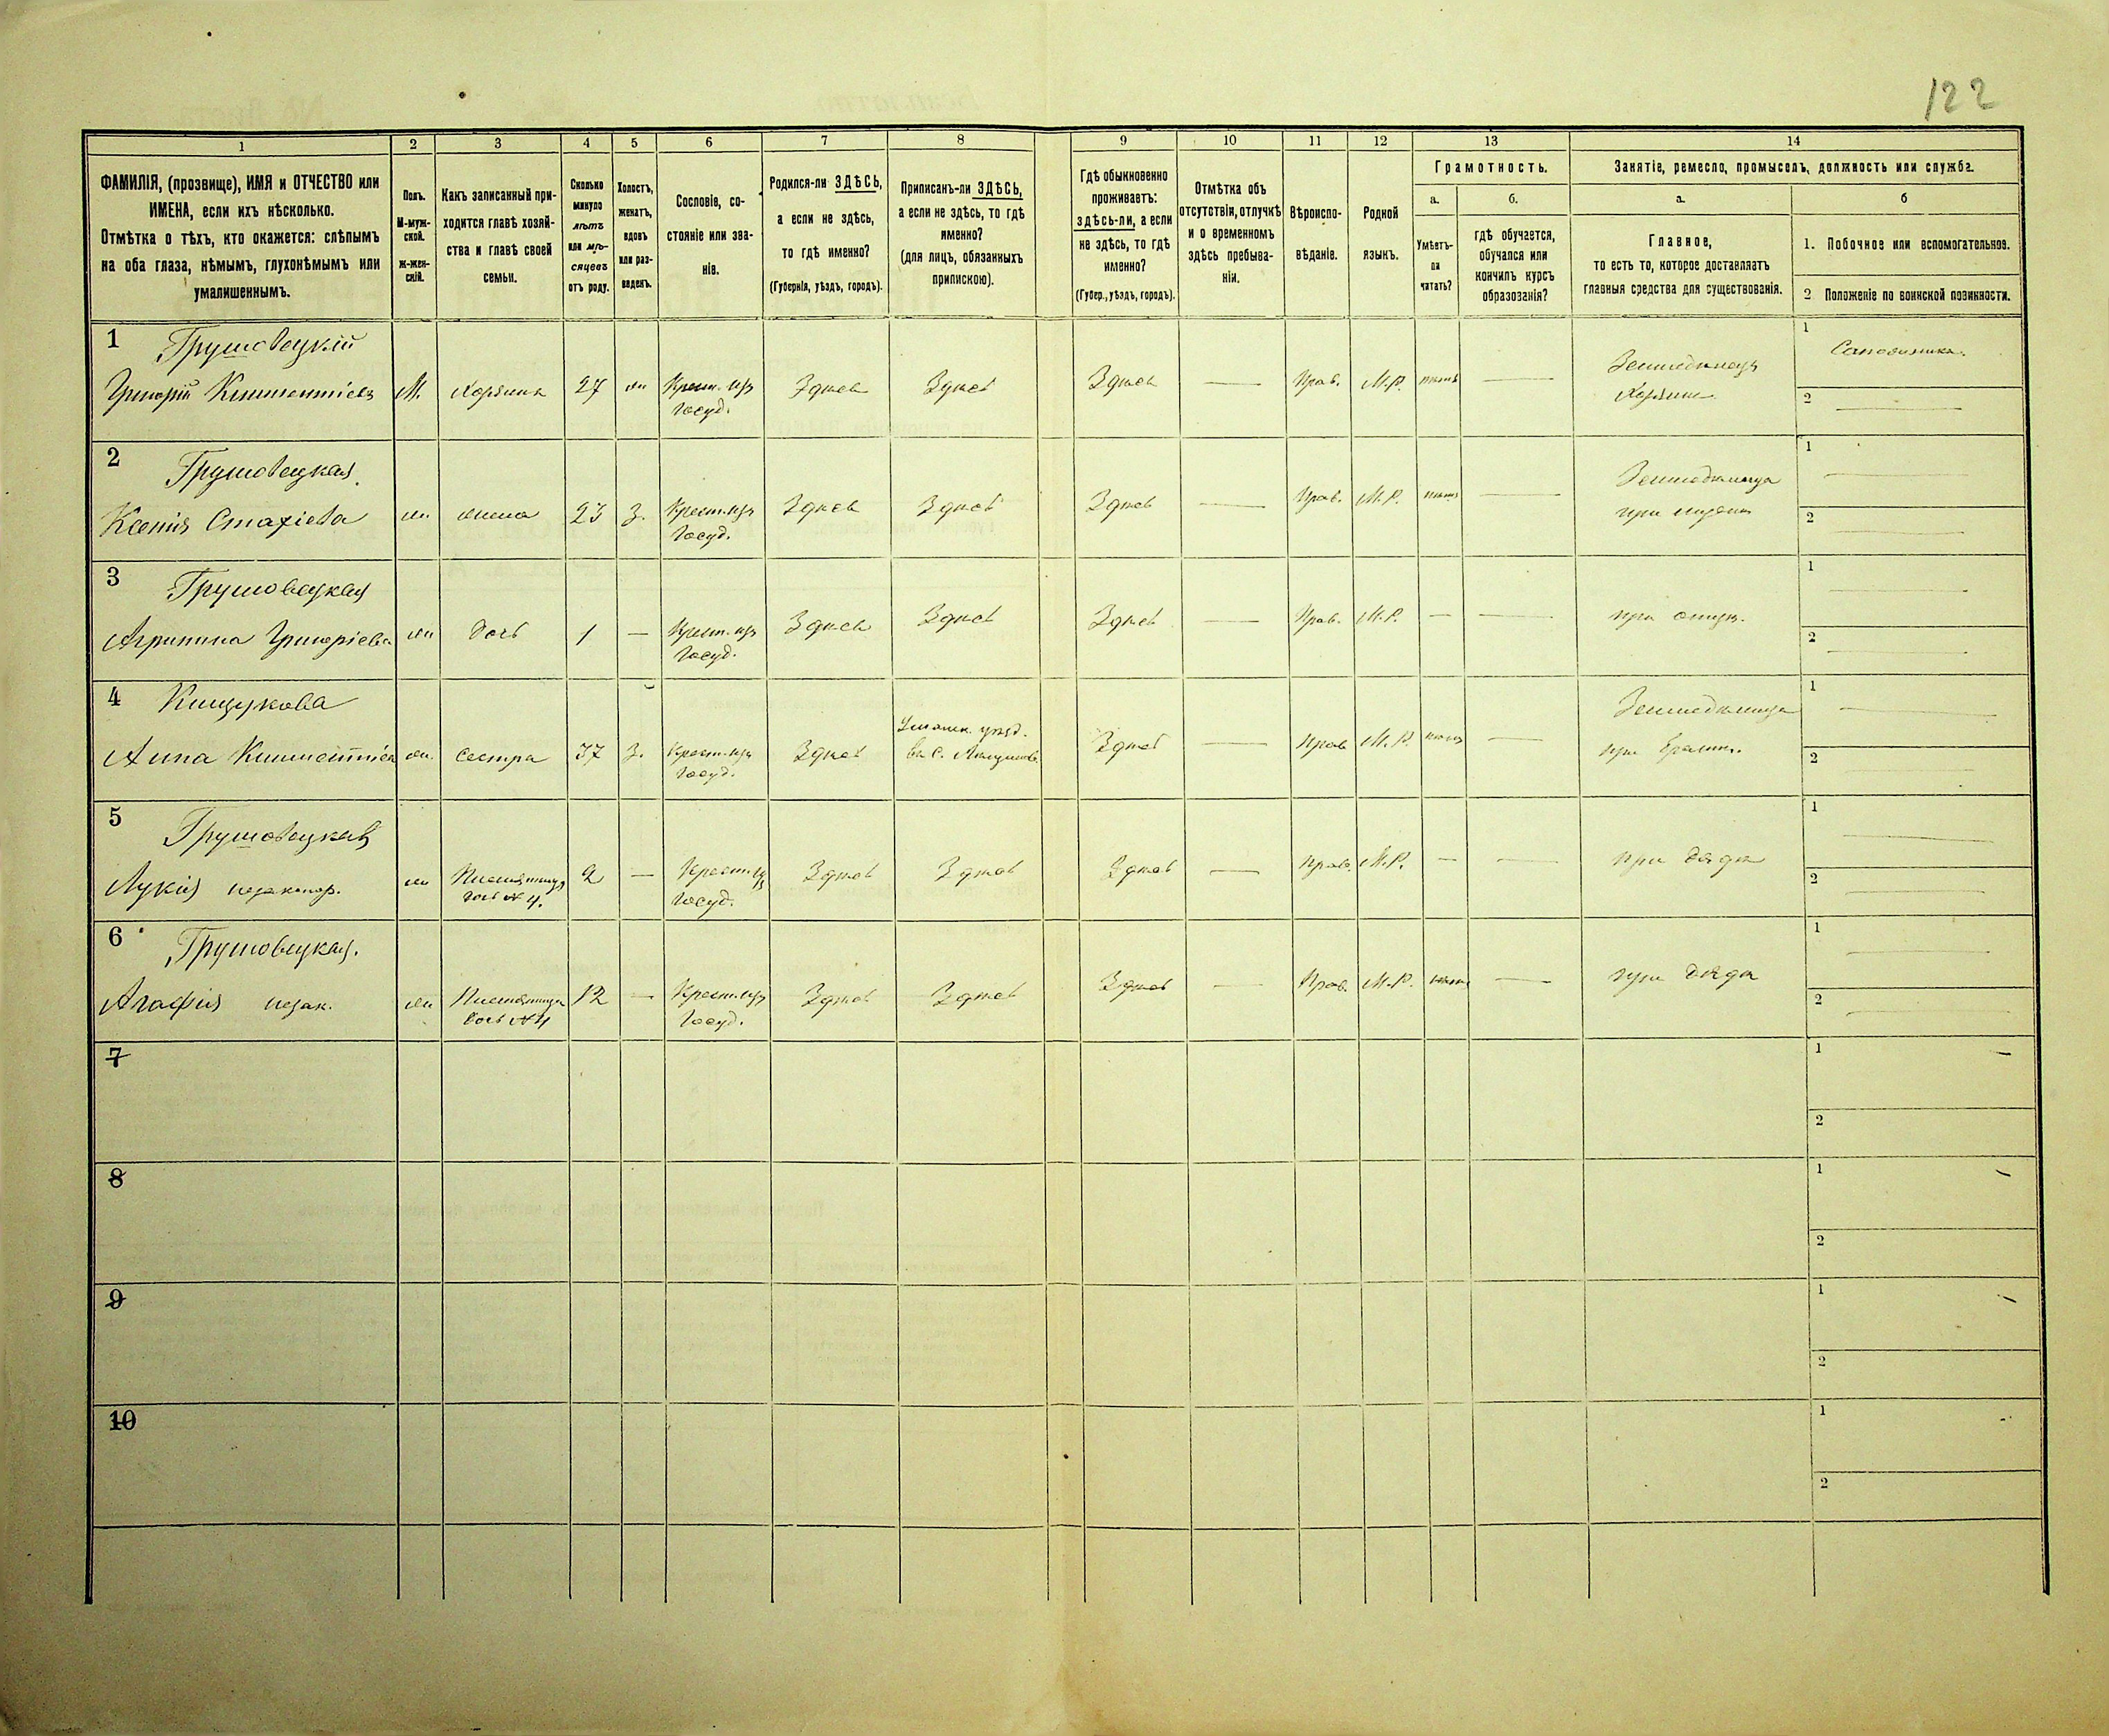 122
1 2 3 4 5 6 7 8 9 10 11 12 13 14
ФАМИЛІЯ, (прозвище), ИМЯ и ОТЧЕСТВО или
ИМЕНА, если ихъ нѣсколько.
Отмѣтка о тѣхъ, кто окажется: слѣпымъ
на оба глаза, нѣмымъ, глухонѣмымъ или
умалишеннымъ.
Полъ.
М-муж-
ской.
ж-жен-
скій.
Какъ записанный при-
ходится главѣ хозяй-
ства и главѣ своей
семьи.
Сколько
минуло
лѣтъ
или мѣ-
сяцевъ
отъ роду.
Холостъ,
женатъ,
вдовъ
или раз-
веденъ.
Сословіе, со-
стояніе или зва-
ніе.
Родился-ли ЗДѢСЬ,
а если не здѣсь,
то гдѣ именно?
(Губернія, уѣздъ, городъ).
Приписанъ-ли ЗДѢСЬ,
а если не здѣсь, то гдѣ
именно?
(для лицъ, обязанныхъ
припискою).
Гдѣ обыкновенно
проживаетъ:
здѣсь-ли, а если
не здѣсь, то гдѣ
именно?
(Губер., уѣздъ, городъ).
Отмѣтка объ
отсутствіи, отлучкѣ
и о временномъ
здѣсь пребыва-
ніи.
Вѣроиспо-
вѣданіе.
Родной
языкъ.
Грамотность.
а. б.
Умѣетъ-
ли
читать?
гдѣ обучается,
обучался или
кончилъ курсъ
образованія?
Занятіе, ремесло, промыселъ, должность или служба.
а. б
Главное,
то есть то, которое доставляетъ
главныя средства для существованія.
1. Побочное или вспомогательное.
2 Положеніе по воинской повинности.
1 Грушовецкій
Григорій Климентіевъ М. Хозяинъ 27 жн Крест. изъ Здѣсь Здѣсь Здѣсь — Прав. М.Р. нѣтъ —
Госуд.
Земледѣлецъ
Хозяинъ
1
2 —
2 Грушовецкая
Ксенія жн жена 23 З. Крест. изъ Здѣсь Здѣсь Здѣсь — Прав. М.Р. нѣтъ —
Госуд.
Земледѣлица
при мужѣ
1 —
2 —
3 Грушовецкая
Агрипина Григоріева жн дочь 1 — Крест. изъ Здѣсь Здѣсь Здѣсь — Прав. М.Р. — —
Госуд.
при отцѣ.
1 —
2 —
4 Кищукова
Анна жн. сестра 37 З. Крест. изъ Здѣсь
Госуд.
Уманск. уѣзд.
въ с.
Здѣсь — Прав М.Р. нѣтъ —
Земледѣлица
при братѣ.
1 —
2 —
5 Грушовецкая
Лукія незаконор. жн Племянница 2 — Крест. изъ Здѣсь Здѣсь Здѣсь — Прав. М.Р. — — при дядѣ
дочь № 4. Госуд.
1 —
2 —
6 Грушовецкая.
Агафія незак. жн Племянница 12 — Крест. изъ Здѣсь Здѣсь Здѣсь — Прав. М.Р. нѣтъ — при дядѣ
дочь №4 Госуд.
1 —
2 —
7
1
2
8
1
2
9
1
2
10
1
2